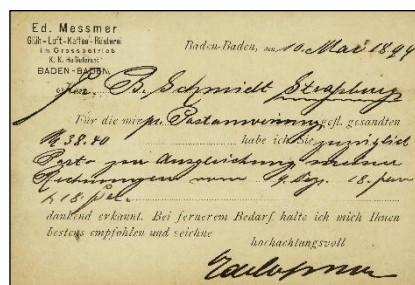 Ed. Messmer
Glüh-Luft-Kaffee-Rösterei
im Grossbetrieb
K. K. Hoflieferant
BADEN-BADEN.
Baden-Baden, 10. Mai 1899
B. Schmidt Strassburg
Für die mir pr. Postanweisung gefl. gesandten
M 38.40 habe ich Sie zuzüglich
Porto zur Ausgleichung meiner
Rechnungen vom 9. Dez. 18. Jan
& 18. Feb.
dankend erkannt. Bei fernerem Bedarf halte ich mich Ihnen
bestens empfohlen und zeichne
hochachtungsvoll